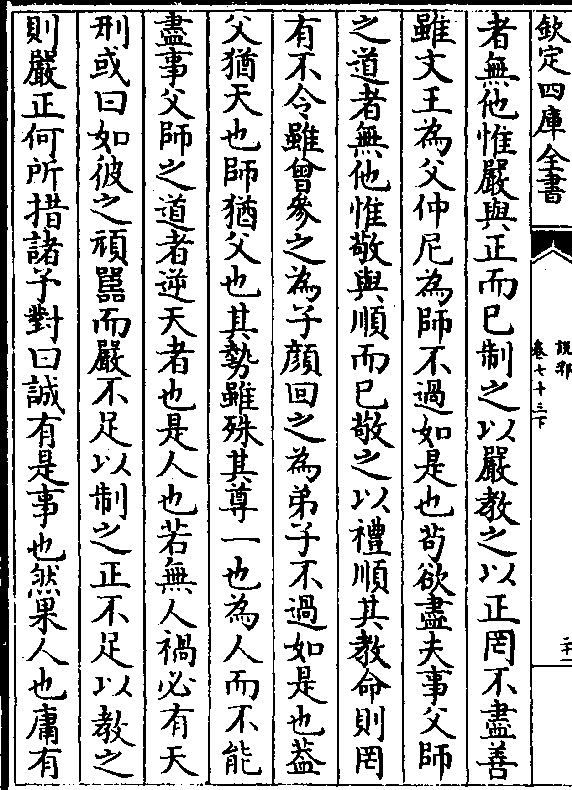 欽定四庫全書
說郛
卷七十三下
二十一
者無他惟嚴與正而已制之以嚴教之以正罔不盡善
雖文王為父仲尼為師不過如是也苟欲盡夫事父師
之道者無他惟敬與順而已敬之以禮順其教命則罔
有不令雖曾參之為子顔回之為弟子不過如是也葢
父猶天也師猶父也其勢雖殊其尊一也為人而不能
盡事父師之道者逆天者也是人也若無人禍必有天
刑或曰如彼之頑嚚而嚴不足以制之正不足以教之
則嚴正何所措諸予對曰誠有是事也然果人也庸有